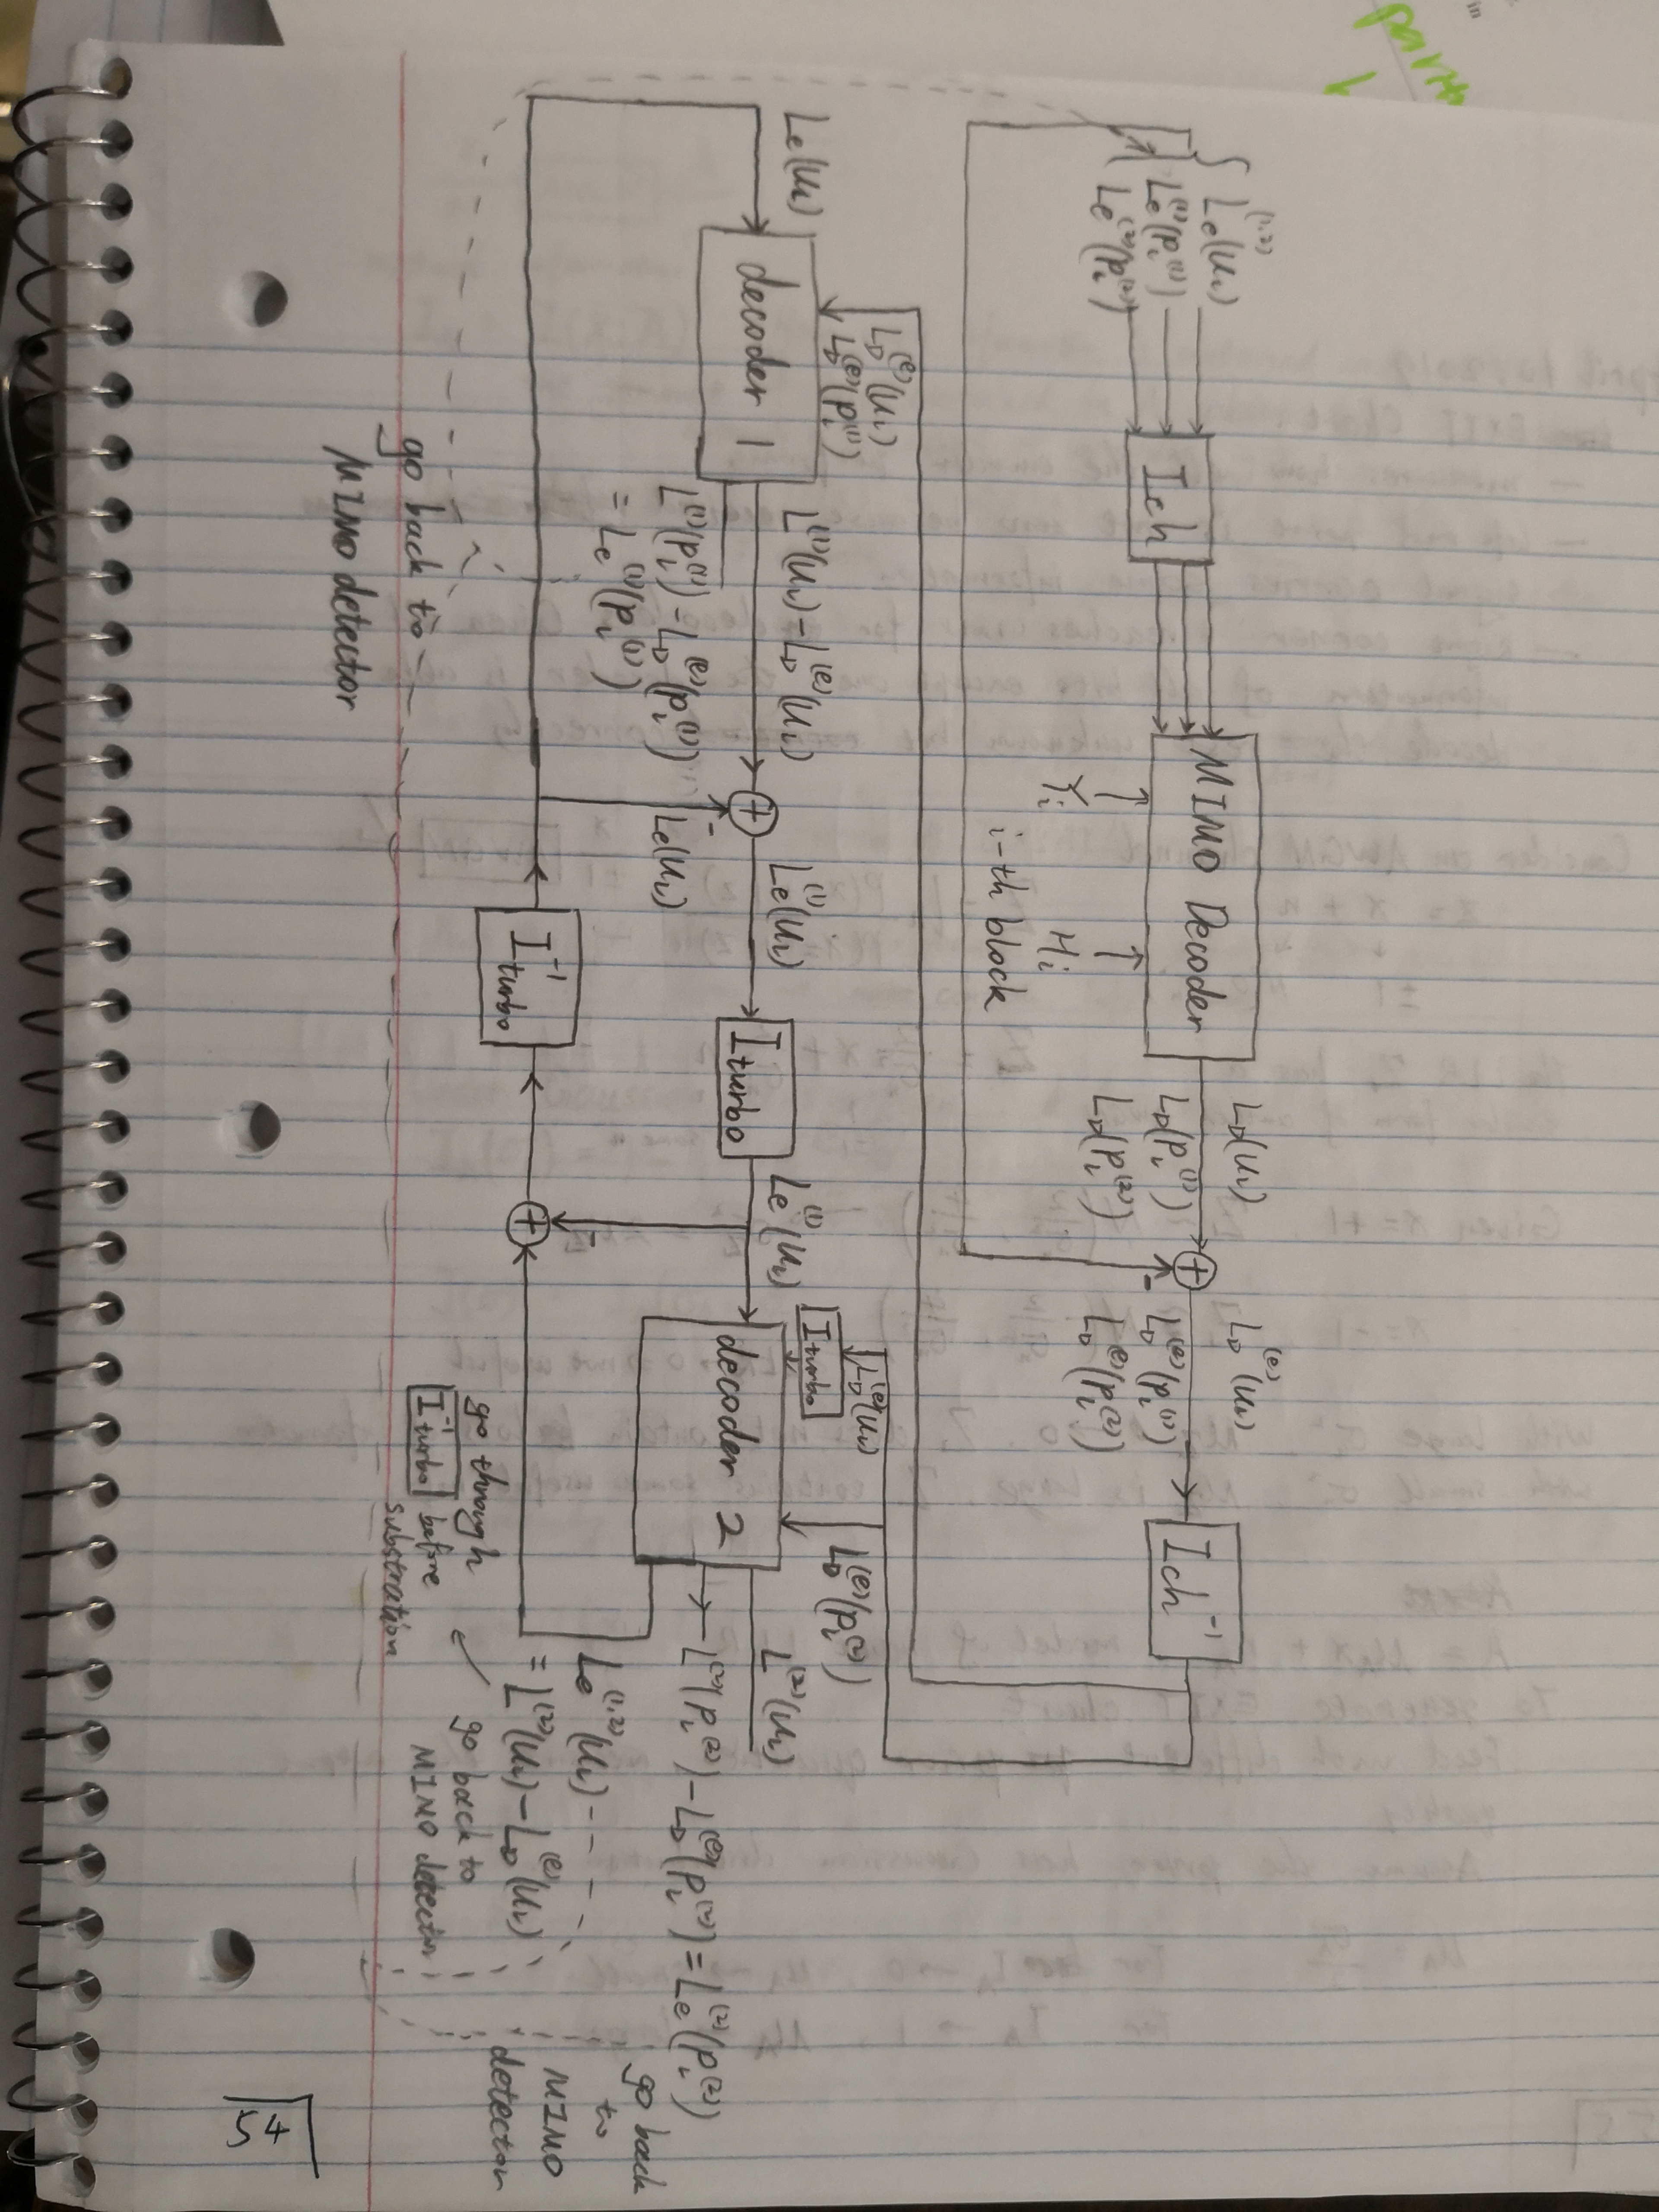 in
L_e^(1,2)(u_i)
L_e^(1)(p_i^(1))
L_e^(2)(p_i^(2))
Ich
MIMO Decoder
Y_i
H_i
i-th block
L_D(u_i)
L_D(p_i^(1))
L_D(p_i^(2))
+
-
L_D^(e)(u_i)
L_D^(e)(p_i^(1))
L_D^(e)(p_i^(2))
Ich^-1
L_D^(e)(u_i)
L_D^(e)(p_i^(1))
L_e(u_i)
decoder 1
L^(1)(u_i)-L_D^(e)(u_i)
L^(1)(p_i^(1))-L_D^(e)(p_i^(1))
= L_e^(1)(p_i^(1))
+
-
L_e(u_i)
L_e^(1)(u_i)
I_turbo
L_e^(1)(u_i)
L_D^(e)(u_i)
I_turbo
L_D^(e)(p_i^(2))
decoder 2
L^(2)(u_i)
L^(2)(p_i^(2))-L_D^(e)(p_i^(2))=L_e^(2)(p_i^(2))
go back
to
MIMO
detector
L_e^(1,2)(u_i)
= L^(2)(u_i)-L_D^(e)(u_i)
go back to
MIMO detector
-
+
I_turbo^-1
go through
I_turbo^-1 before
substration
go back to
MIMO detector
54